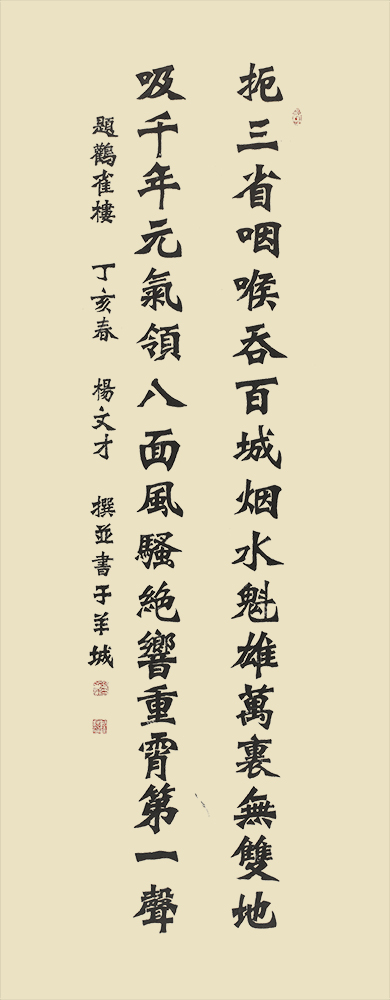 扼三省咽喉吞百城烟水魁雄萬裏無雙地
吸千年元氣領八面風騷絶響重霄第一聲
題鸛雀樓 丁亥春 楊文才 撰並書于羊城